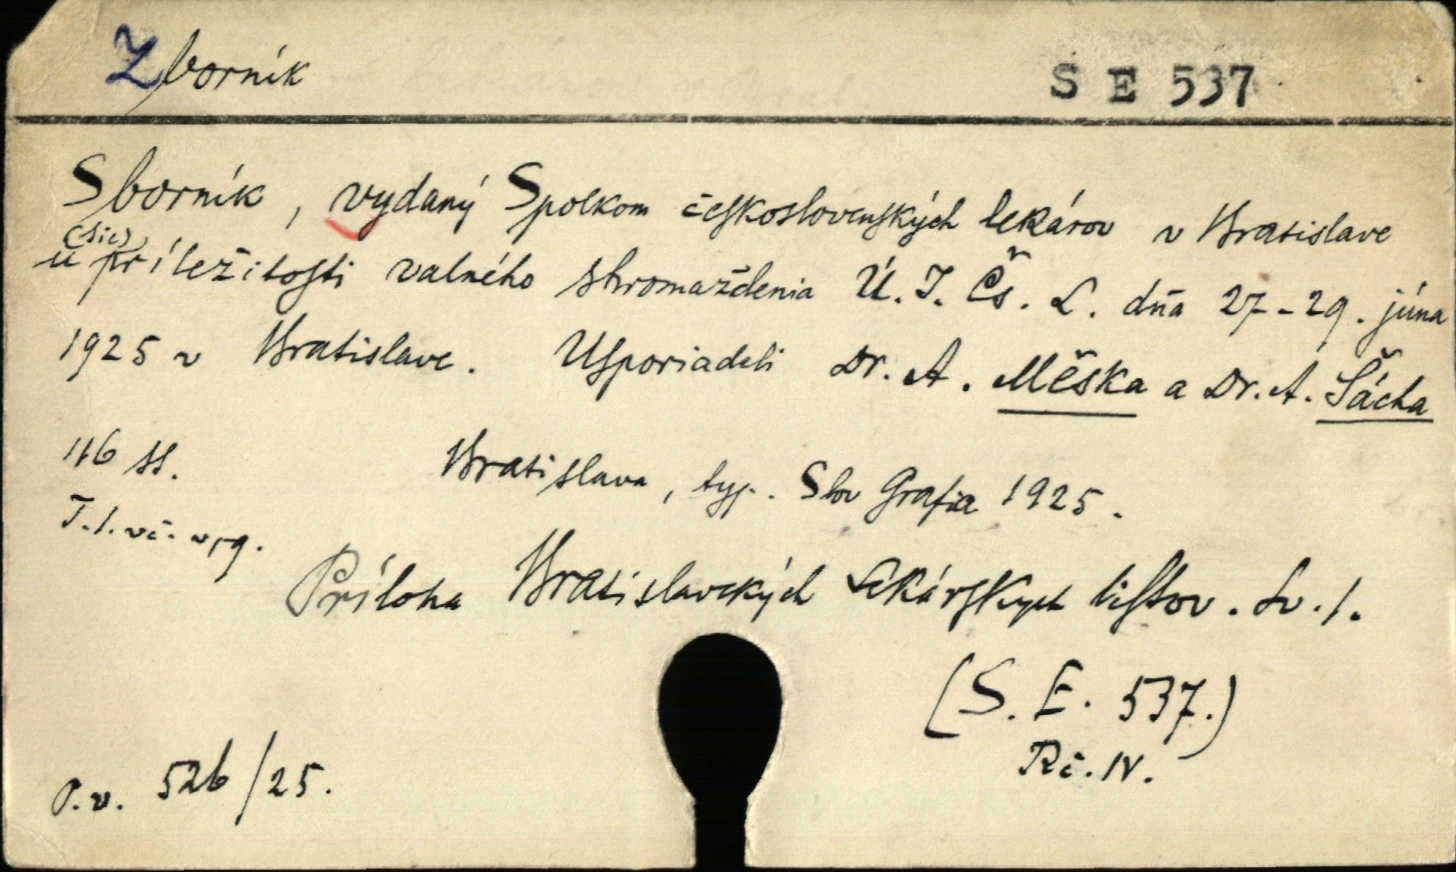 Zborník
SE 537
Sborník, vydaný Spolkom československých lekárov v Bratislave
(sic)
u príležitosti valného shromaždenia Ú. J. Čs. L. dňa 27-29. júna
1925 v Bratislave. Usporiadeli Dr. A. Měska a Dr. A. Šácha
116 ss.
Bratislava, typ. Slov Grafia 1925.
Príloha Bratislavských Lekárskych listov. Sv. 1.
(S. E. 537.)
Rč. IV.
P. v. 526/25.